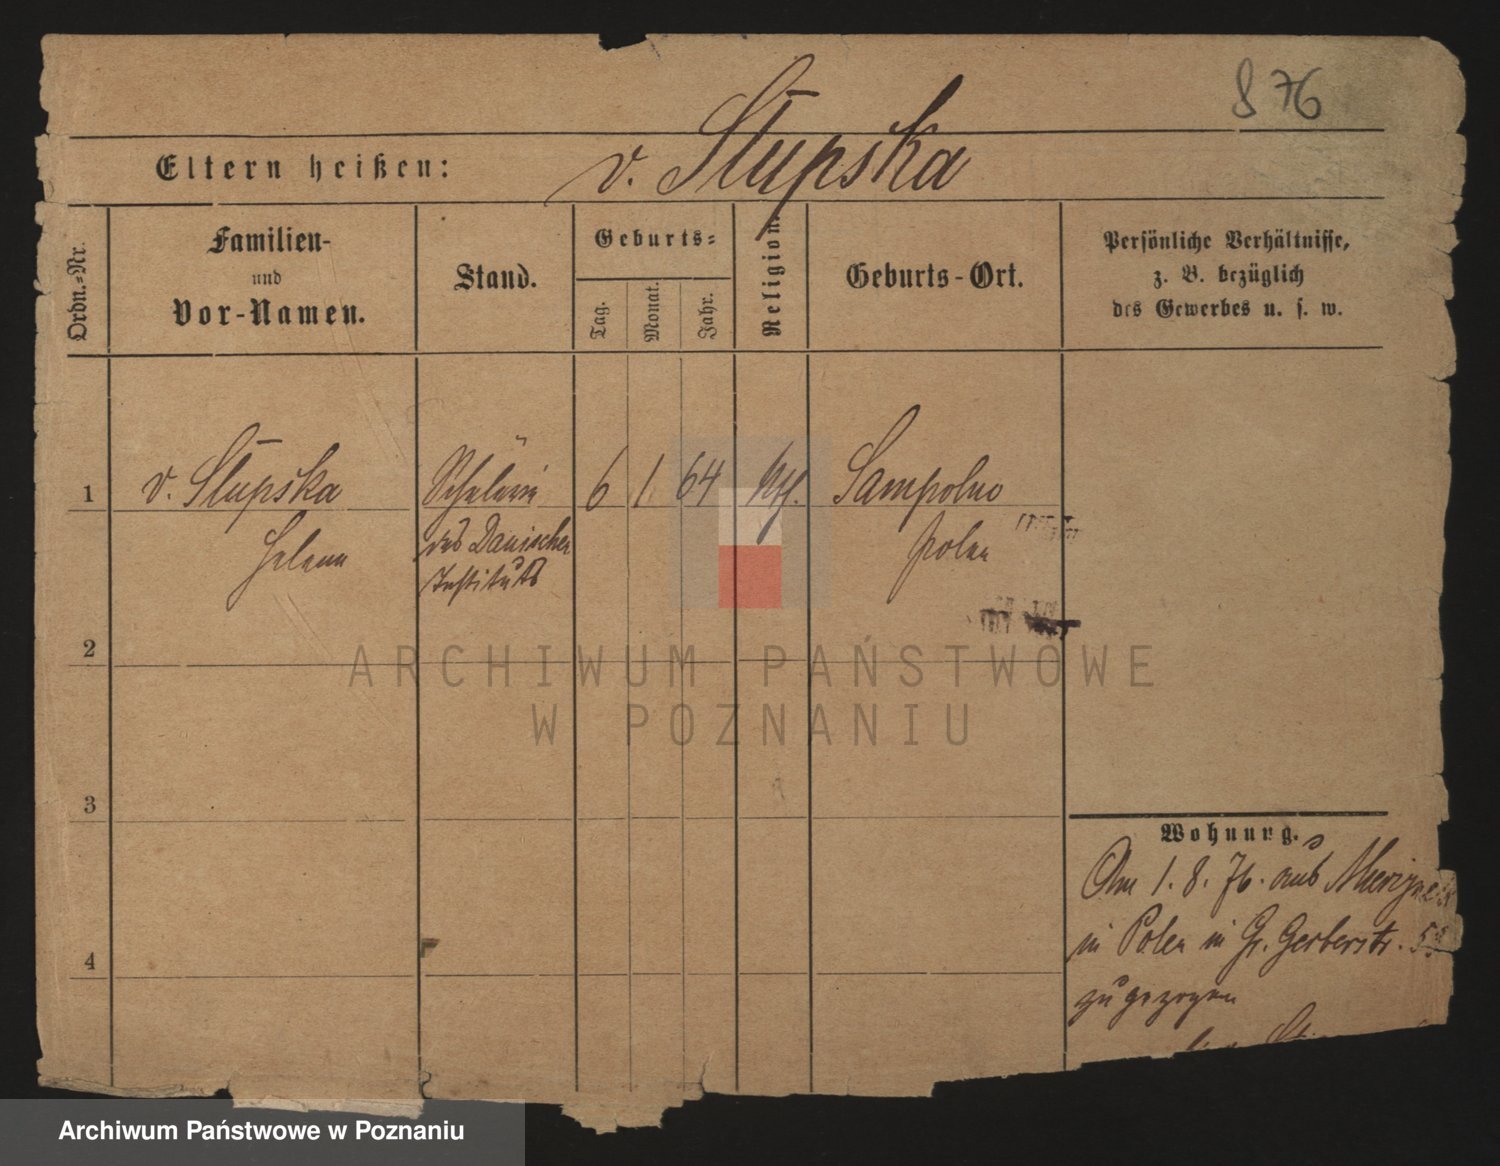 8 76
Eltern heißen: v. Słupska
Ordn.-Nr.
Familien-
und
Vor-Namen.
Stand.
Geburts-
Tag.
Monat.
Jahr.
Religion.
Geburts-Ort.
Persönliche Verhältnisse,
z. B. bezüglich
des Gewerbes u. s. w.
1 v. Słupska Schülerin 6 1 64 kth. Sampolno
Helena des Danischen Polen
Instituts
2
ARCHIWUM PAŃSTWOWE
W POZNANIU
3
Wohnung.
Am 1. 8. 76. aus
in Polen in Gr. Gerberstr.
4
zugezogen
Archiwum Państwowe w Poznaniu